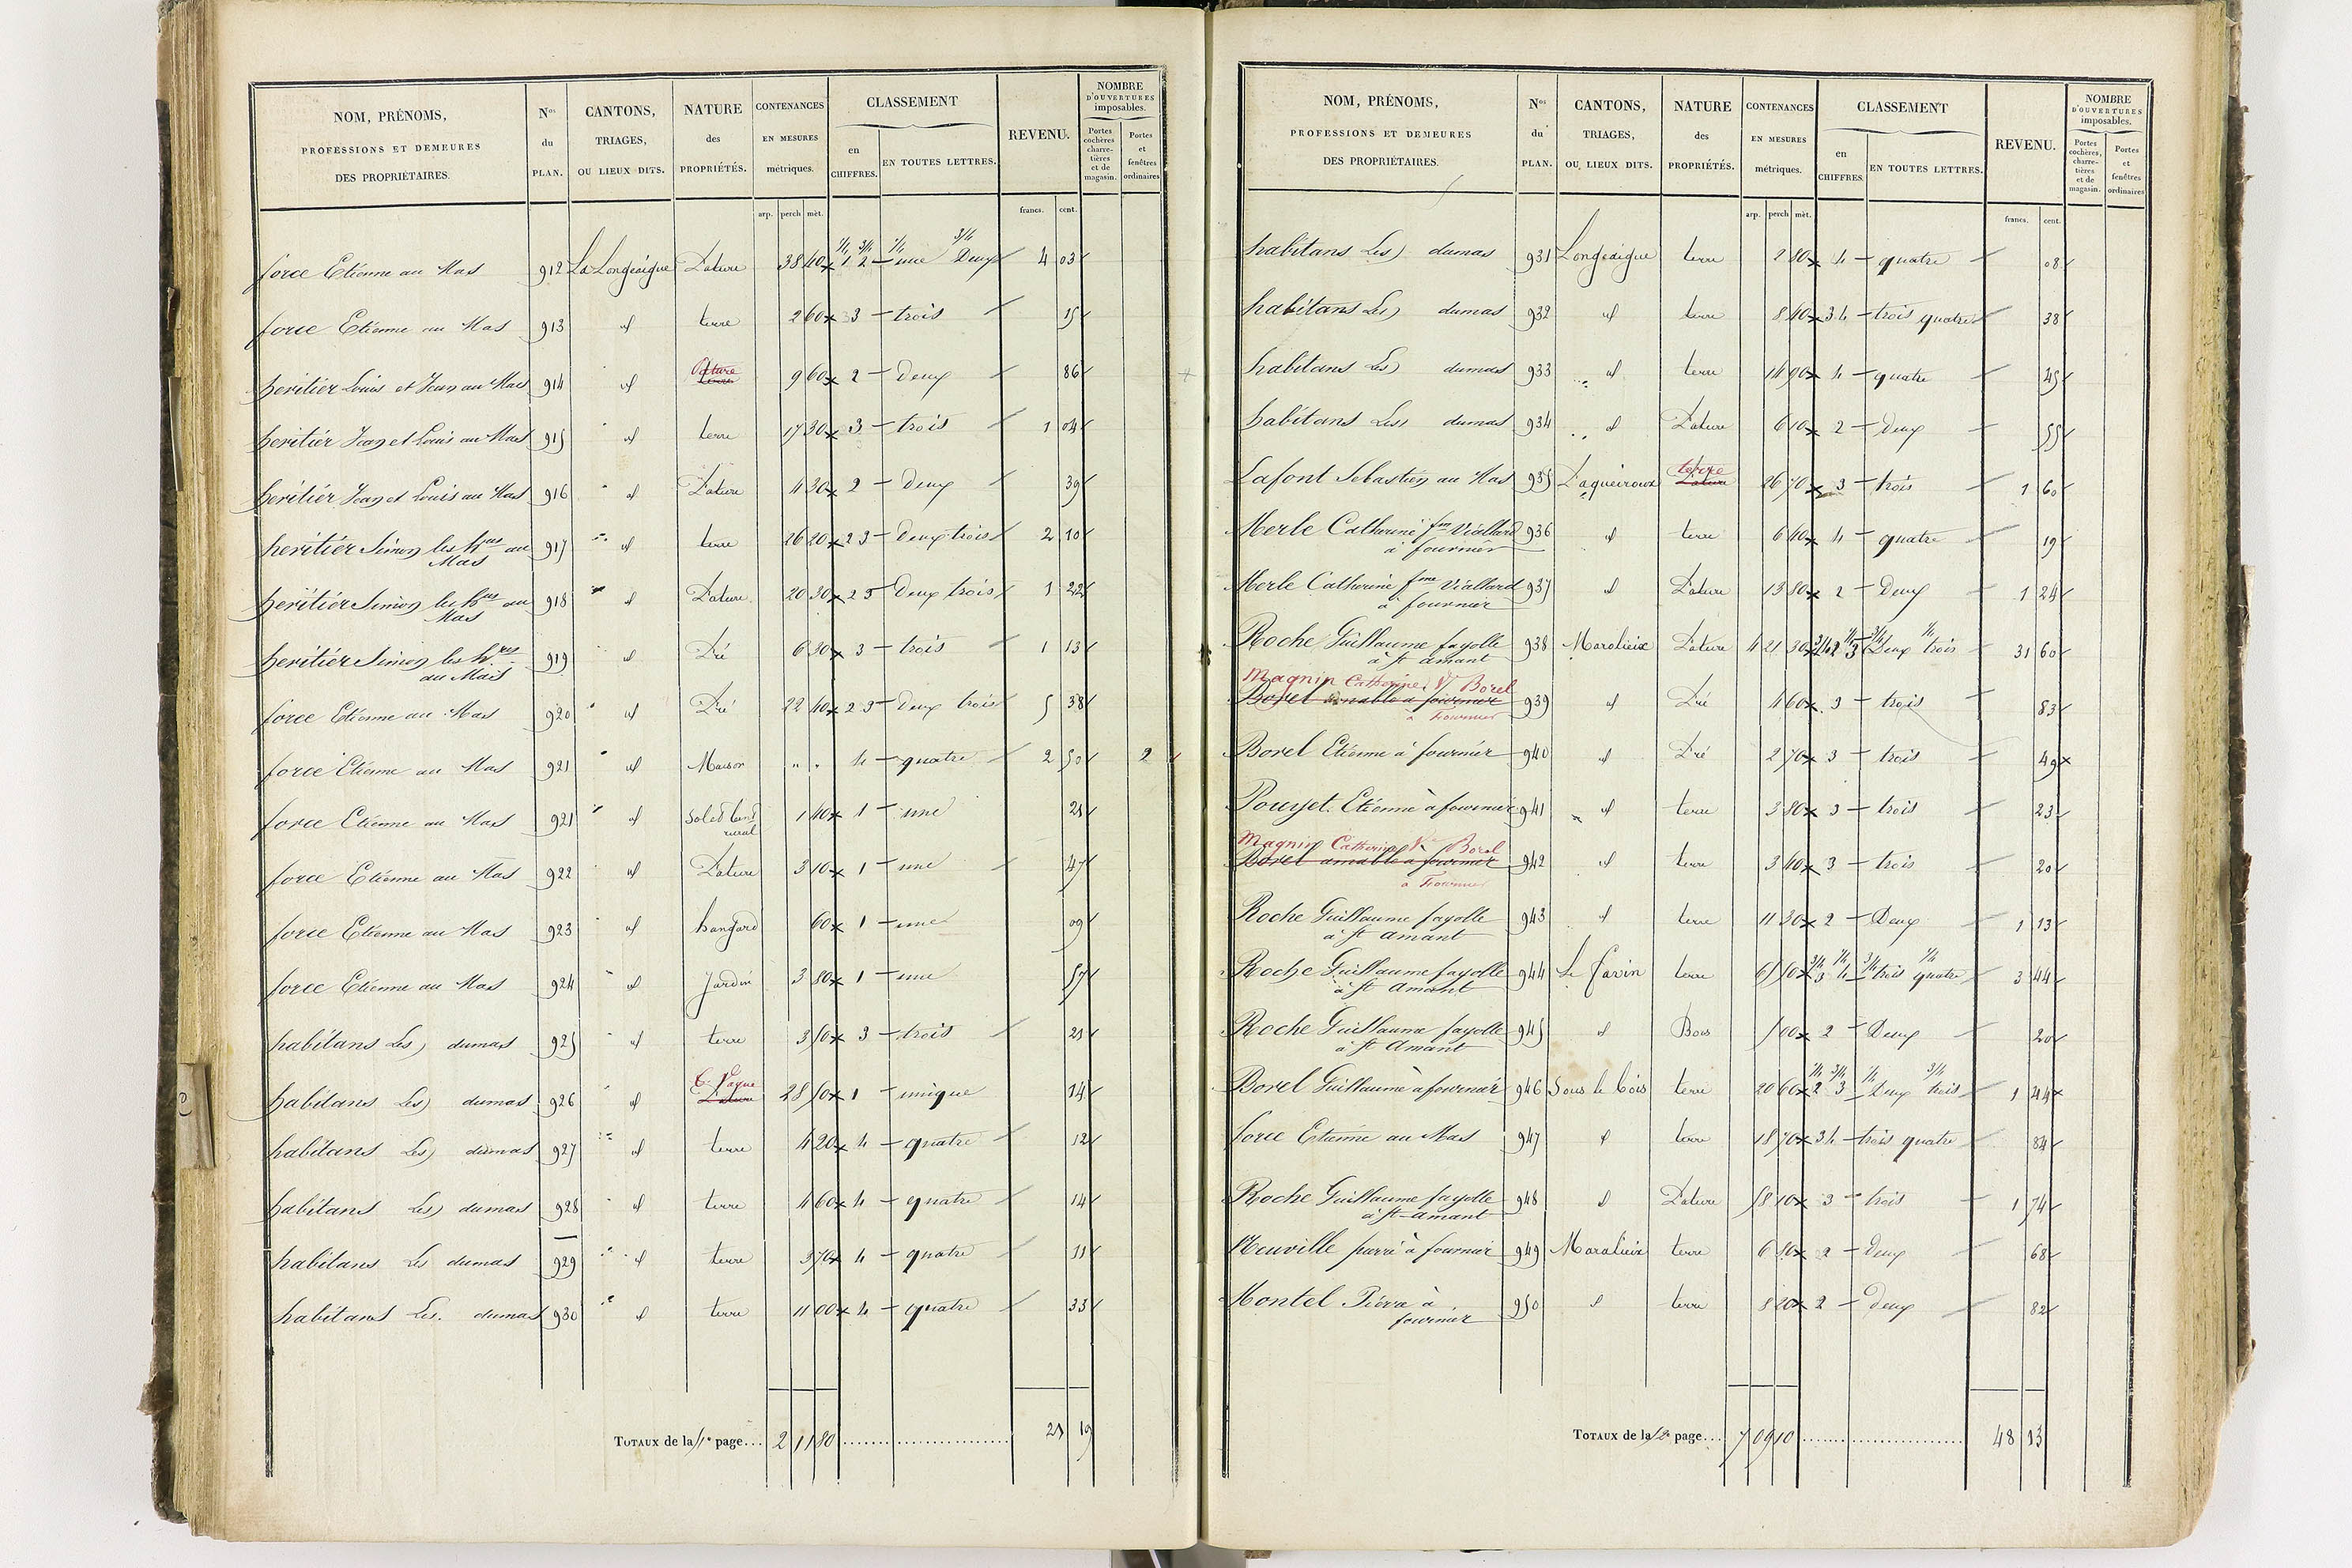 NOM, PRÉNOMS, PROFESSIONS ET DEMEURES DES PROPRIÉTAIRES. Nos du PLAN. CANTONS, TRIAGES, OU LIEUX DITS. NATURE des PROPRIÉTÉS. CONTENANCES EN MESURES métriques. CLASSEMENT en CHIFFRES. EN TOUTES LETTRES. REVENU. NOMBRE D'OUVERTURES imposables. Portes cochères, charretières et de magasin. Portes et fenêtres ordinaires
arp. perch mèt. francs. cent.
force Etienne au Mas 912 La Longeaigue Pature 38 40 1/4 1 3/4 2 1/4 une 3/4 Deux 4 03
force Etienne au Mas 913 id terre 2 60 3 trois 15
heritiér Louis et Jean au Mas 914 id Pature terre 9 60 2 Deux 86
heritiér Jean et Louis au Mas 915 id terre 17 30 3 trois 1 04
heritiér Jean et Louis au Mas 916 id Pature 4 30 2 Deux 39
heritiér Simon les hres au Mas 917 id terre 26 20 2 3 Deux trois 2 10
heritiér Simon les hres au Mas 918 id Pature 20 30 2 3 Deux trois 1 22
heritiér Simon les hres au Mas 919 id Pré 6 30 3 trois 1 13
force Etienne au Mas 920 id Pré 22 40 2 3 Deux trois 5 38
force Etienne au Mas 921 id Maison " " 4 quatre 2 50 2
force Etienne au Mas 921 id Sol et rural 1 40 1 une 21
force Etienne au Mas 922 id Pature 3 10 1 une 47
force Etienne au Mas 923 id hangard 60 1 une 09
force Etienne au Mas 924 id Jardin 3 80 1 une 57
habitans Les dumas 925 id terre 3 50 3 trois 21
habitans Les dumas 926 id t. Vague Pature 28 50 1 unique 14
habitans Les dumas 927 id terre 4 20 4 quatre 12
habitans Les dumas 928 id terre 4 60 4 quatre 14
habitans Les dumas 929 id terre 3 70 4 quatre 11
habitans Les dumas 930 id terre 11 00 4 quatre 33
TOTAUX de la 51e page.... 2 11 80 21 19
NOM, PRÉNOMS, PROFESSIONS ET DEMEURES DES PROPRIÉTAIRES. Nos du PLAN. CANTONS, TRIAGES, OU LIEUX DITS. NATURE des PROPRIÉTÉS. CONTENANCES EN MESURES métriques. CLASSEMENT en CHIFFRES EN TOUTES LETTRES. REVENU. NOMBRE D'OUVERTURES imposables. Portes cochères, charretières et de magasin. Portes et fenêtres ordinaires
arp. perch mèt. francs. cent.
habitans Les dumas 931 Longeaigue terre 2 80 4 quatre 08
habitans Les dumas 932 id terre 8 40 3 4 trois quatre 38
habitans Les dumas 933 id terre 14 90 4 quatre 45
habitans Les dumas 934 id Pature 6 10 2 Deux 55
Lafont Sebastién au Mas 935 Paqueiroux terre Pature 26 70 3 trois 1 60
Merle Catherine fme Viallard à fourniér 936 id terre 6 40 4 quatre 19
Merle Catherine fme Viallard à fourniér 937 id Pature 13 80 2 Deux 1 24
Roche Guillaume fayolle à St amant 938 Maralieix Pature 4 21 30 3/4 2 1/4 3 3/4 Deux 1/4 trois 31 60
Magnin Catherine Ve Borel
Borel amable à fourniér 939 id Pré 4 60 3 trois 83
à Fournier
Borel Etienne à fourniér 940 id Pré 2 70 3 trois 49
Pouyet Etienne à fourniér 941 id terre 3 80 3 trois 23
Magnin Catherine Ve Borel
Borel amable à fourniér 942 id terre 3 40 3 trois 20
à Fournier
Roche Guillaume fayolle à St amant 943 id terre 11 30 2 Deux 1 13
Roche Guillaume fayolle à St Amant 944 terre 3/4 3 1/4 4 3/4 trois 1/4 quatre 3 44
Roche Guillaume fayolle à St Amant 945 id Bois 5 00 2 Deux 20
Borel Guillaume à fourniér 946 Sous le bois terre 20 60 1/4 2 3/4 3 1/4 Deux 3/4 trois 1 44
force Etienne au Mas 947 id terre 18 70 3 4 trois quatre 84
Roche Guillaume fayolle à St amant 948 id Pature 58 10 3 trois 1 74
Neuville à fourniér 949 Maralieix terre 6 80 2 Deux 68
Montel Piérre à fourniér 950 id terre 8 20 2 Deux 82
TOTAUX de la 52e page.... 7 09 10 48 13